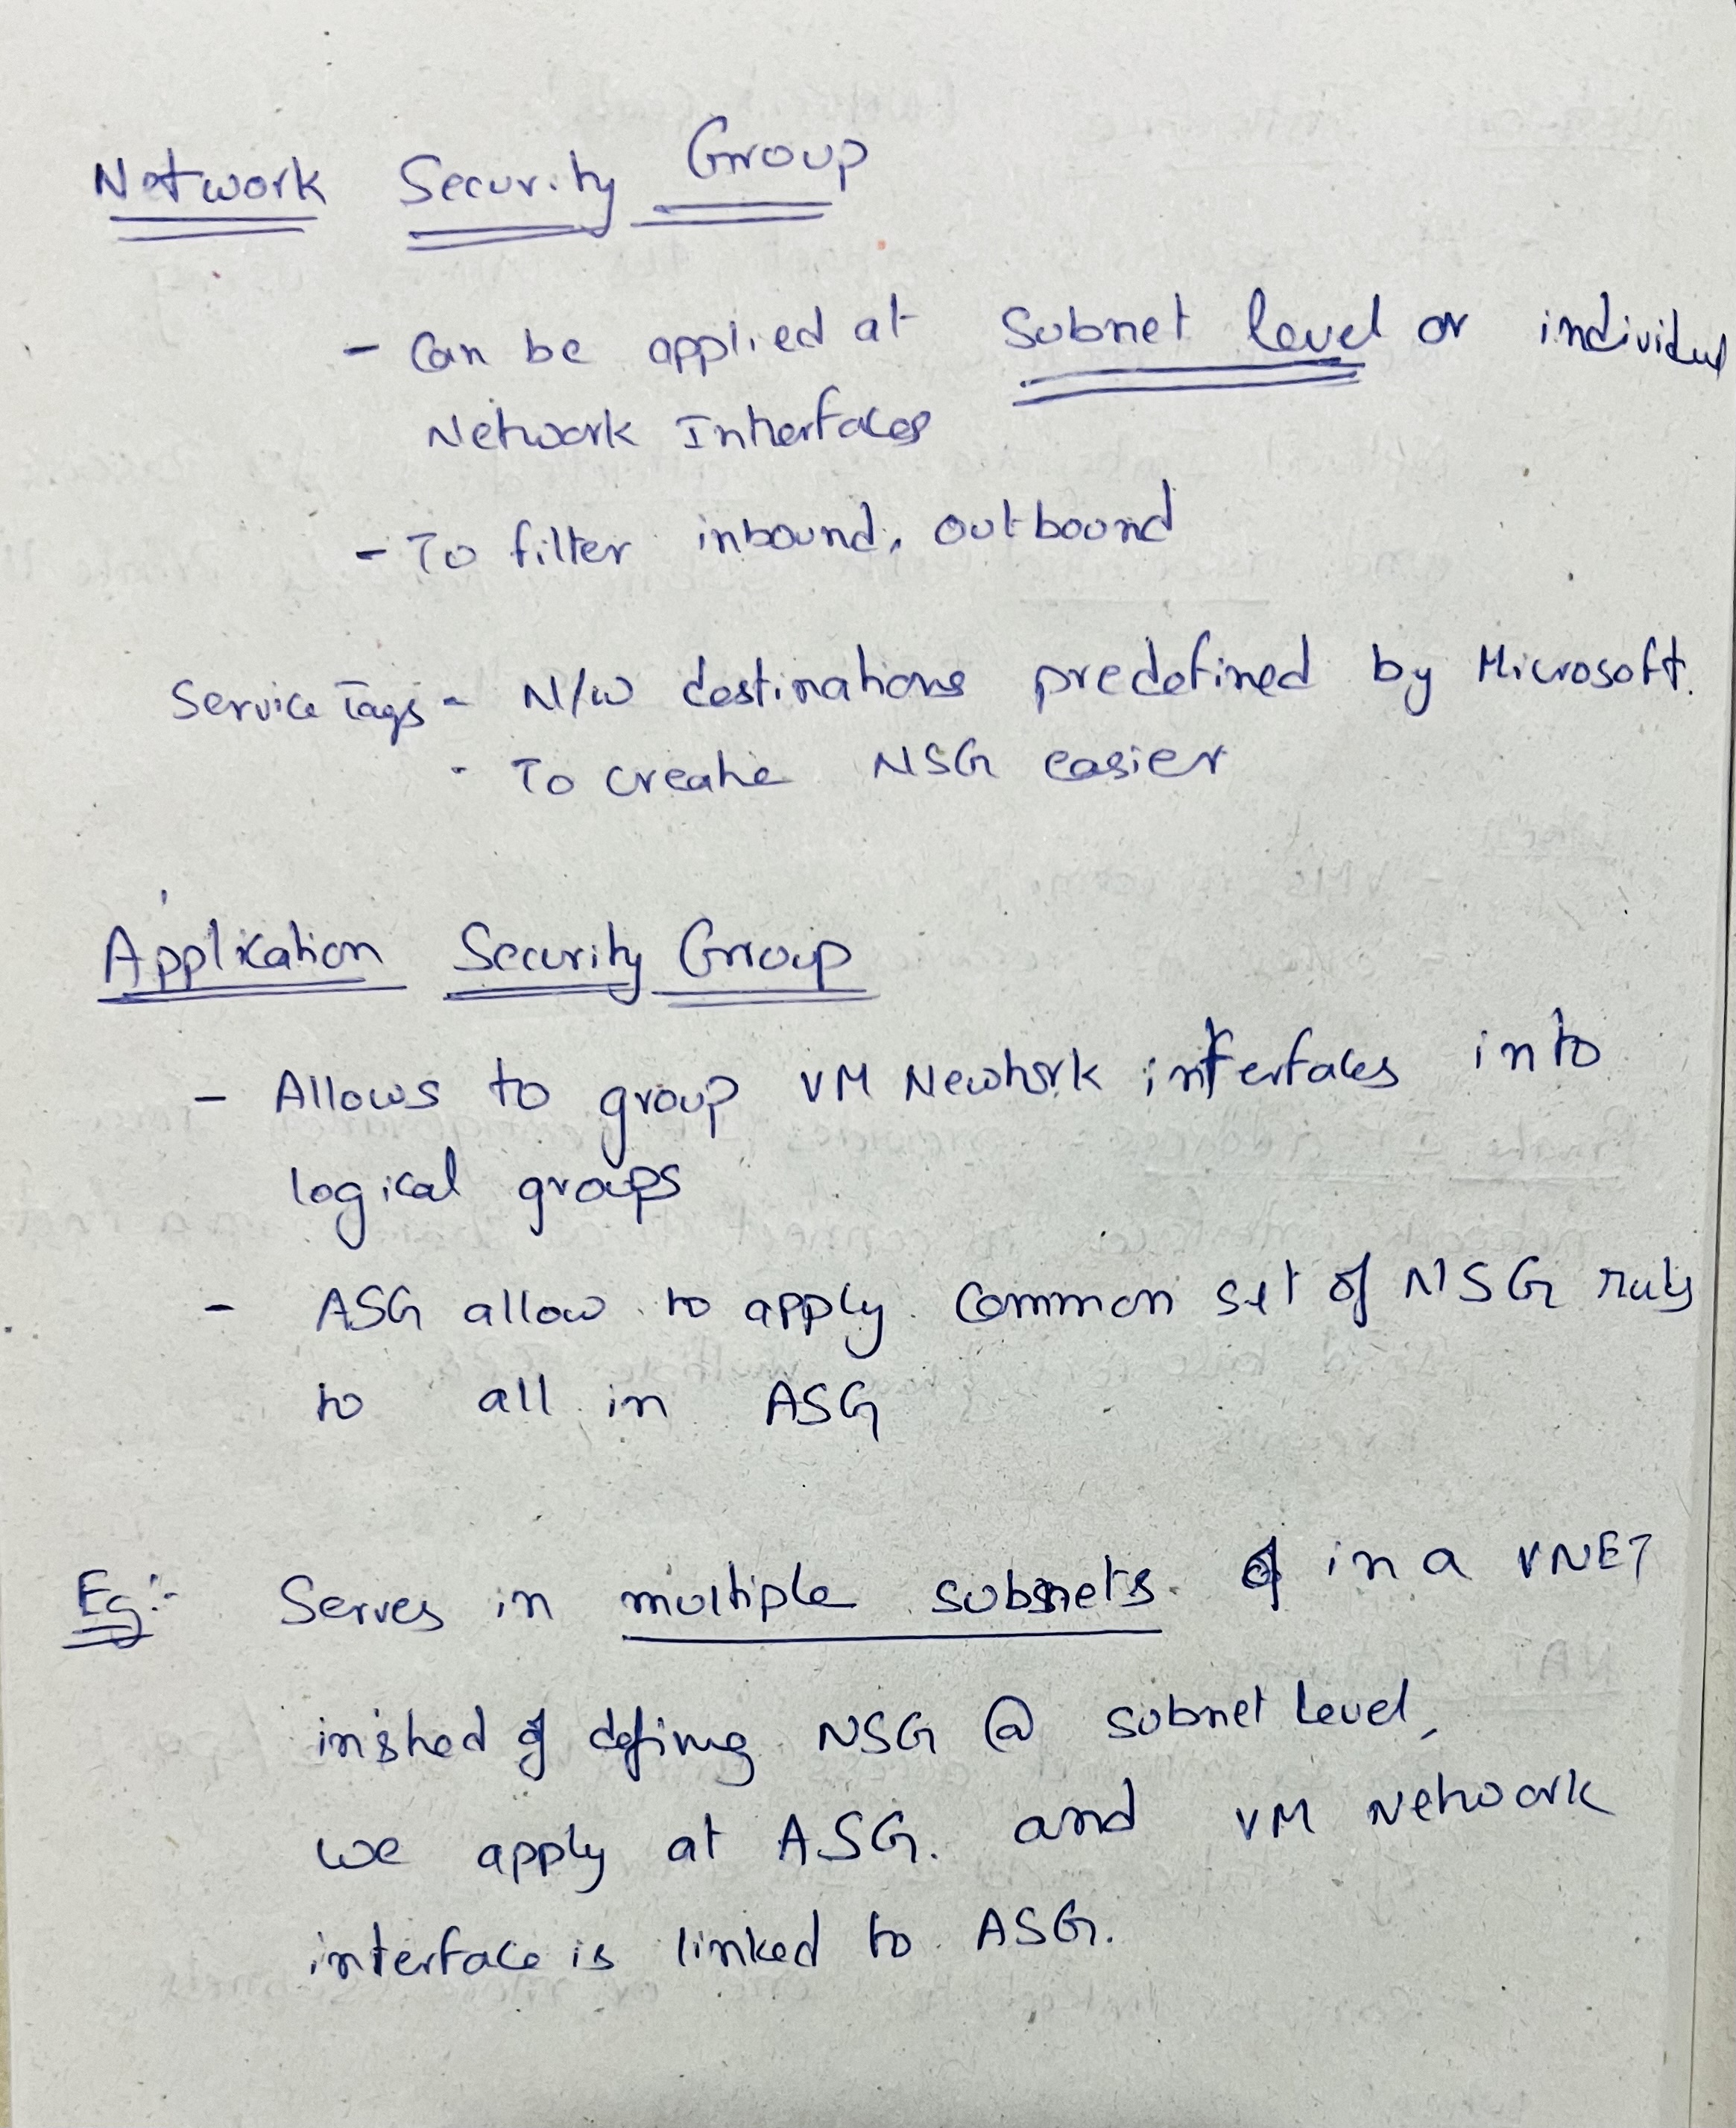 Network Security Group
- Can be applied at Subnet level or individual
Network Interfaces
- To filter inbound, outbound
Service Tags - N/W destinations predefined by Microsoft.
- To create NSG easier
Application Security Group
- Allows to group VM Newtork interfaces into
logical groups
- ASG allow to apply common set of NSG rules
to all in ASG
Eg:- Serves in multiple subsnets in a VNET
instead of defining NSG @ subnet level,
we apply at ASG. and VM Network
interface is linked to ASG.